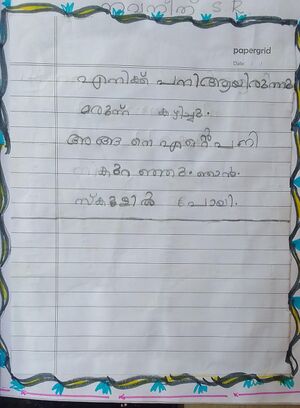 നവനീത് S R
papergrid
Date: / /
എനിക്ക് പനി ആയിരുന്നു
മരുന്ന് കഴിച്ചു.
അങ്ങനെ എന്റെ പനി
കുറഞ്ഞു. ഞാൻ
സ്കൂളിൽ പോയി.